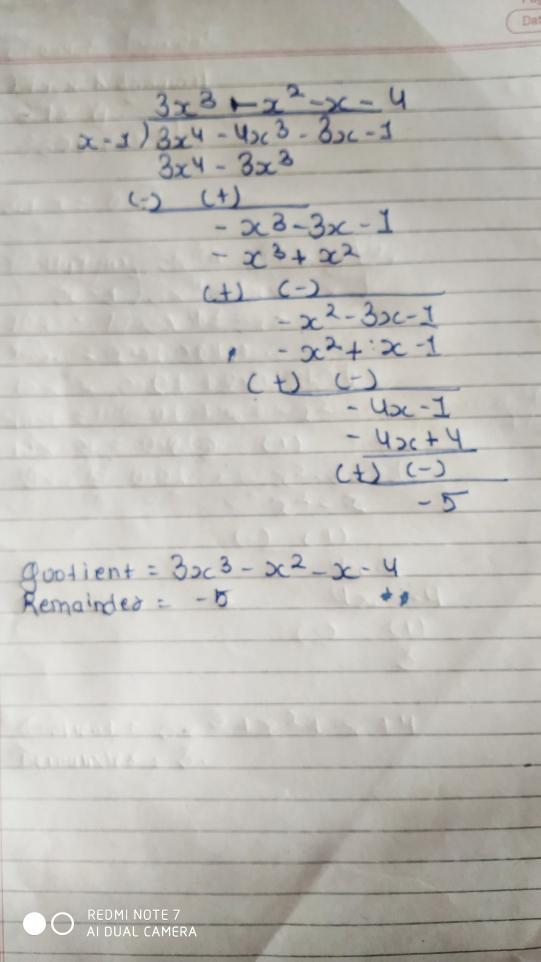 3x³ - x² - x - 4
x-1)3x4 - 4x3 - 3x - 1
3x4 - 3x3
(-) (+)
- x3 - 3x - 1
- x3 + x2
(+) (-)
- x2 - 3x - 1
- x2 + x - 1
(+) (-)
- 4x - 1
- 4x + 4
(+) (-)
- 5
quotient = 3x3 - x2 - x - 4
Remainder = -5
REDMI NOTE 7
AI DUAL CAMERA